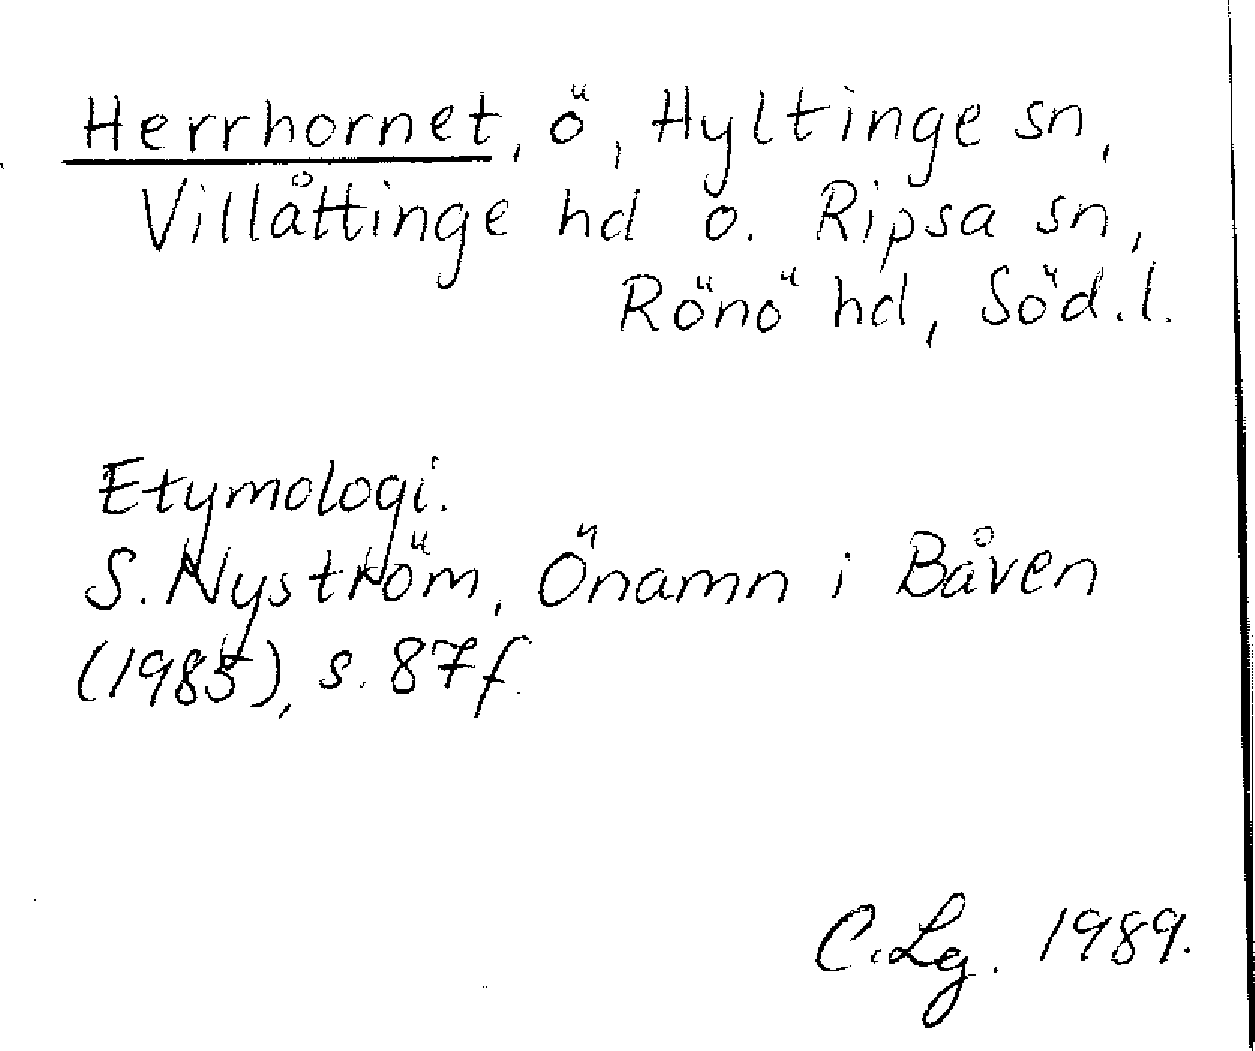 Herrhornet, ö, Hyltinge sn,
Villåttinge hd o. Ripsa sn,
Rönö hd, Söd.l.
Etymologi.
S. Nyström, Önamn i Båven
(1985), s. 87f.
C.Lg. 1989.